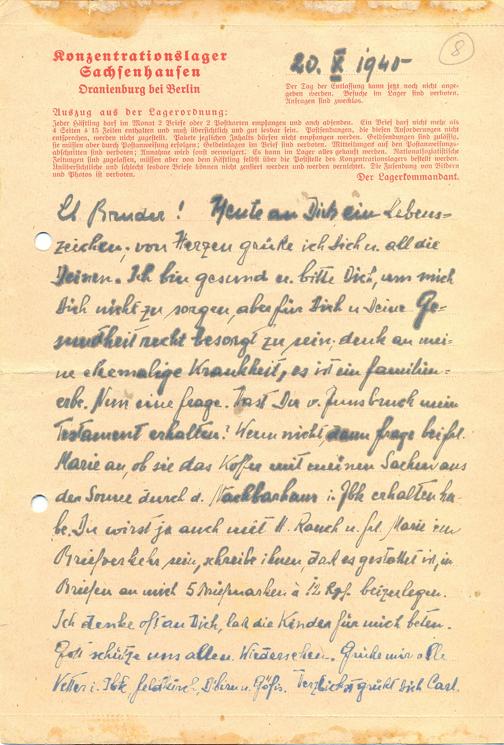 8
Konzentrationslager
Sachsenhausen
Oranienburg bei Berlin
20. X 1940
Der Tag der Entlassung kann jetzt noch nicht ange-
geben werden. Besuche im Lager sind verboten.
Anfragen sind zwecklos.
Auszug aus der Lagerordnung:
Jeder Häftling darf im Monat 2 Briefe oder 2 Postkarten empfangen und auch absenden. Ein Brief darf nicht mehr als
4 Seiten à 15 Zeilen enthalten und muß übersichtlich und gut lesbar sein. Postsendungen, die diesen Anforderungen nicht
entsprechen, werden nicht zugestellt. Pakete jeglichen Inhalts dürfen nicht empfangen werden. Geldsendungen sind zulässig,
sie müssen aber durch Postanweisung erfolgen; Geldeinlagen im Brief sind verboten. Mitteilungen auf den Postanweisungs-
abschnitten sind verboten; Annahme wird sonst verweigert. Es kann im Lager alles gekauft werden. Nationalsozialistische
Zeitungen sind zugelassen, müssen aber von dem Häftling selbst über die Poststelle des Konzentrationslagers bestellt werden.
Unübersichtliche und schlecht lesbare Briefe können nicht zensiert werden und werden vernichtet. Die Zusendung von Bildern
und Photos ist verboten.
Der Lagerkommandant.
Lb. Bruder! Heute an Dich ein Lebens-
zeichen, von Herzen grüße ich Dich u. all die
Deinen. Ich bin gesund u. bitte Dich, um mich
Dich nicht zu sorgen, aber für Dich u Deine Ge-
sundheit recht besorgt zu sein; denk an mei-
ne ehemalige Krankheit, es ist ein familien-
erbe. Nun eine frage. Hast Du v. Innsbruck mein
Testament erhalten? Wenn nicht, dann frage bei frl.
Marie an, ob sie das Koffer mit meinen Sachen aus
der Sonne durch d. Nachbarhaus i. Ibk erhalten ha-
be. Du wirst ja auch mit H. Rauch u. frl. Marie im
Briefverkehr sein, schreibe ihnen, daß es gestattet ist, in
Briefen an mich 5 Briefmarken à 12 Rpf. beizulegen.
Ich denke oft an Dich, laß die Kinder für mich beten.
Gott schütze uns allen. Wiedersehen. Grüße mir alle
Vetter i. Ibk, feldkirch, u. Göfis. Herzlichst grüßt Dich Carl.